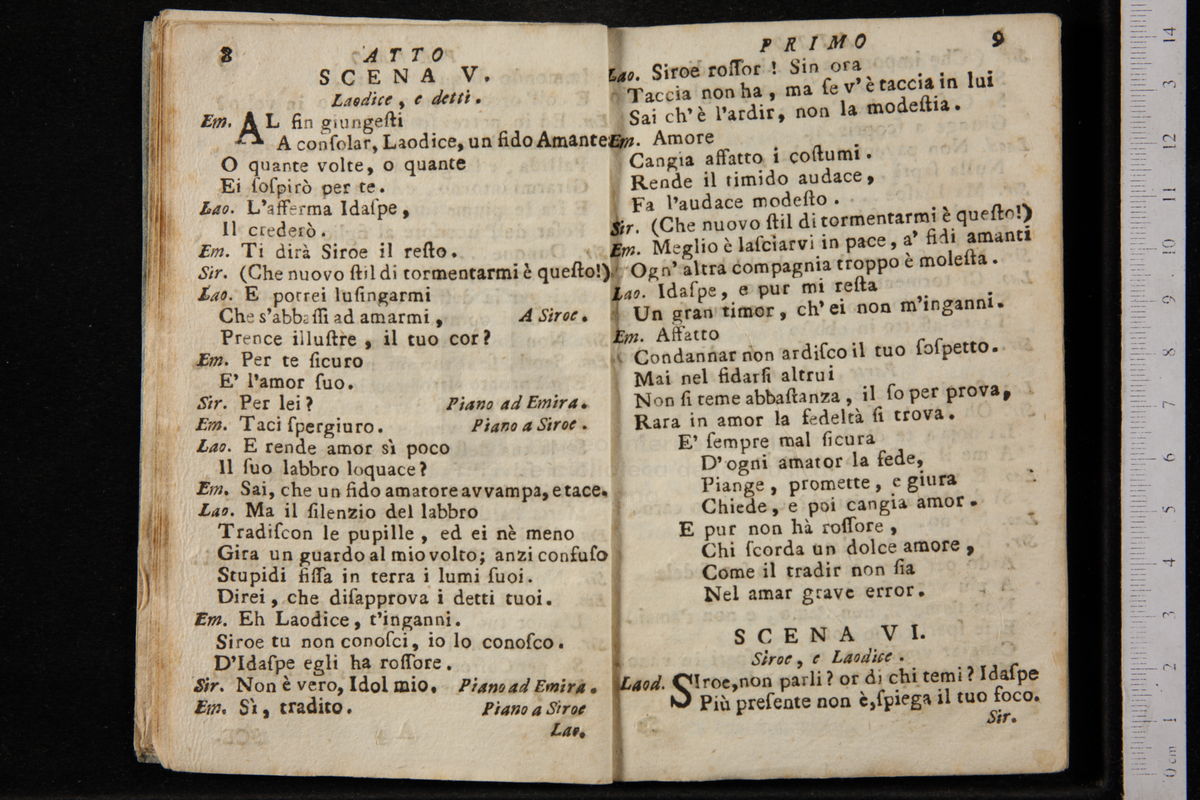 8
ATTO
SCENA V.
Laodice, e detti.
Em. AL fin giungeſti
A conſolar, Laodice, un fido Amante
O quante volte, o quante
Ei ſoſpirò per te.
Lao. L'afferma Idaſpe,
Il crederò.
Em. Ti dirà Siroe il reſto.
Sir. (Che nuovo ſtil di tormentarmi è queſto!)
Lao. E potrei luſingarmi
Che s'abbaſſi ad amarmi, A Siroe.
Prence illuſtre, il tuo cor?
Em. Per te ſicuro
E' l'amor ſuo.
Sir. Per lei? Piano ad Emira.
Em. Taci ſpergiuro. Piano a Siroe.
Lao. E rende amor sì poco
Il ſuo labbro loquace?
Em. Sai, che un fido amatore avvampa, e tace.
Lao. Ma il ſilenzio del labbro
Tradiſcon le pupille, ed ei nè meno
Gira un guardo al mio volto; anzi confuſo
Stupidi fiſſa in terra i lumi ſuoi.
Direi, che diſapprova i detti tuoi.
Em. Eh Laodice, t'inganni.
Siroe tu non conoſci, io lo conoſco.
D'Idaſpe egli ha roſſore.
Sir. Non è vero, Idol mio. Piano ad Emira.
Em. Sì, tradito. Piano a Siroe
Lao.
PRIMO
9
Lao. Siroe roſſor! Sin ora
Taccia non ha, ma ſe v'è taccia in lui
Sai ch'è l'ardir, non la modeſtia.
Em. Amore
Cangia affatto i coſtumi.
Rende il timido audace,
Fa l'audace modeſto.
Sir. (Che nuovo ſtil di tormentarmi è queſto!)
Em. Meglio è laſciarvi in pace, a' fidi amanti
Ogn' altra compagnia troppo è moleſta.
Lao. Idaſpe, e pur mi reſta
Un gran timor, ch' ei non m'inganni.
Em. Affatto
Condannar non ardiſco il tuo ſoſpetto.
Mai nel fidarſi altrui
Non ſi teme abbaſtanza, il ſo per prova,
Rara in amor la fedeltà ſi trova.
E' ſempre mal ſicura
D'ogni amator la fede,
Piange, promette, e giura
Chiede, e poi cangia amor.
E pur non hà roſſore,
Chi ſcorda un dolce amore,
Come il tradir non ſia
Nel amar grave error.
SCENA VI.
Siroe, e Laodice.
Laod. SIroe, non parli? or di chi temi? Idaſpe
Più preſente non è, ſpiega il tuo foco.
Sir.
0 cm 1 2 3 4 5 6 7 8 9 10 11 12 13 14